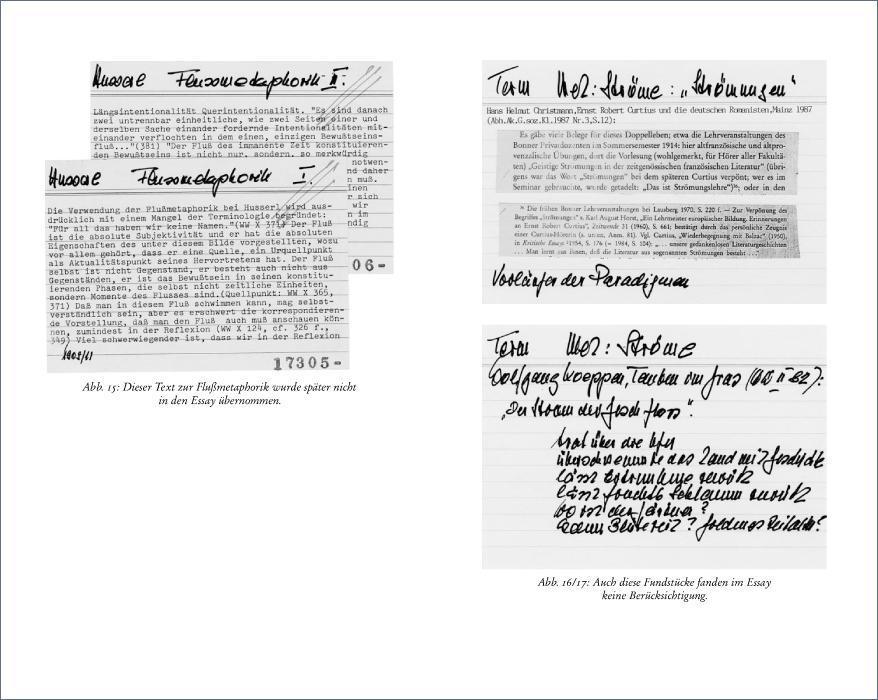 Husserl Flussmetaphorik II.
Längsintentionalität Querintentionalität. "Es sind danach
zwei untrennbar einheitliche, wie zwei Seiten einer und
derselben Sache einander fordernde Intentionalitäten mit-
einander verflochten in dem einen, einzigen Bewußtseins-
fluß..."(381) "Der Fluß des immanente Zeit konstituieren-
den Bewußtseins ist nicht nur, sondern, so merkwürdig
notwen-
nd daher
n muß.
inen
r sich
wir
n im
ndig
06-
Husserl Flussmetaphorik I.
Die Verwendung der Flußmetaphorik bei Husserl wird aus-
drücklich mit einem Mangel der Terminologie begründet:
"Für all das haben wir keine Namen."(WW X 371) Der Fluß
ist die absolute Subjektivität und er hat die absoluten
Eigenschaften des unter diesem Bilde vorgestellten, wozu
vor allem gehört, daß er eine Quelle, ein Urquellpunkt
als Aktualitätspunkt seines Hervortretens hat. Der Fluß
selbst ist nicht Gegenstand, er besteht auch nicht aus
Gegenständen, er ist das Bewußtsein in seinen konstitu-
ierenden Phasen, die selbst nicht zeitliche Einheiten,
sondern Momente des Flusses sind.(Quellpunkt: WW X 365,
371) Daß man in diesem Fluß schwimmen kann, mag selbst-
verständlich sein, aber es erschwert die korrespondieren-
de Vorstellung, daß man den Fluß auch muß anschauen kön-
nen, zumindest in der Reflexion (WW X 124, cf. 326 f.,
349) Viel schwerwiegender ist, dass wir in der Reflexion
17305-
Abb. 15: Dieser Text zur Flußmetaphorik wurde später nicht
in den Essay übernommen.
Term Met: Ströme: „Strömungen"
Hans Helmut Christmann, Ernst Robert Curtius und die deutschen Romanisten, Mainz 1987
(Abh.Ak.G.soz.Kl.1987 Nr.3,S.12):
Es gäbe viele Belege für dieses Doppelleben; etwa die Lehrveranstaltungen des
Bonner Privatdozenten im Sommersemester 1914: hier altfranzösische und altpro-
venzalische Übungen, dort die Vorlesung (wohlgemerkt, für Hörer aller Fakultä-
ten) „Geistige Strömungen in der zeitgenössischen französischen Literatur" (übri-
gens war das Wort "Strömungen" bei dem späteren Curtius verpönt; wer es im
Seminar gebrauchte, wurde getadelt: „Das ist Strömungslehre"); oder in den
Die frühen Bonner Lehrveranstaltungen bei Lausberg 1970, S. 220 f. — Zur Verpönung des
Begriffes „Strömungen" s. Karl August Horst, „Ein Lehrmeister europäischer Bildung. Erinnerungen
an Ernst Robert Curtius", Zeitwende 31 (1960), S. 661; bestätigt durch das persönliche Zeugnis
einer Curtius-Hörerin (s. unten, Anm. 81). Vgl. Curtius, „Wiederbegegnung mit Balzac", (1950),
in Kritische Essays ²1954, S. 176 (= 1984, S. 104): „... unsere gedankenlosen Literaturgeschichten
... Man lernt aus ihnen, daß die Literatur aus sogenannten Strömungen besteht ..."
Vorläufer der Paradigmen
Term Met: Ströme
Wolfgang Koeppen, Tauben im Gras (GW II 82):
„Der Strom der Geschichte floss".
trat über die Ufer
überschwemmte das Land mit Geschichte
lässt Ertrunkene zurück
lässt Schlamm zurück
Abb. 16/17: Auch diese Fundstücke fanden im Essay
keine Berücksichtigung.